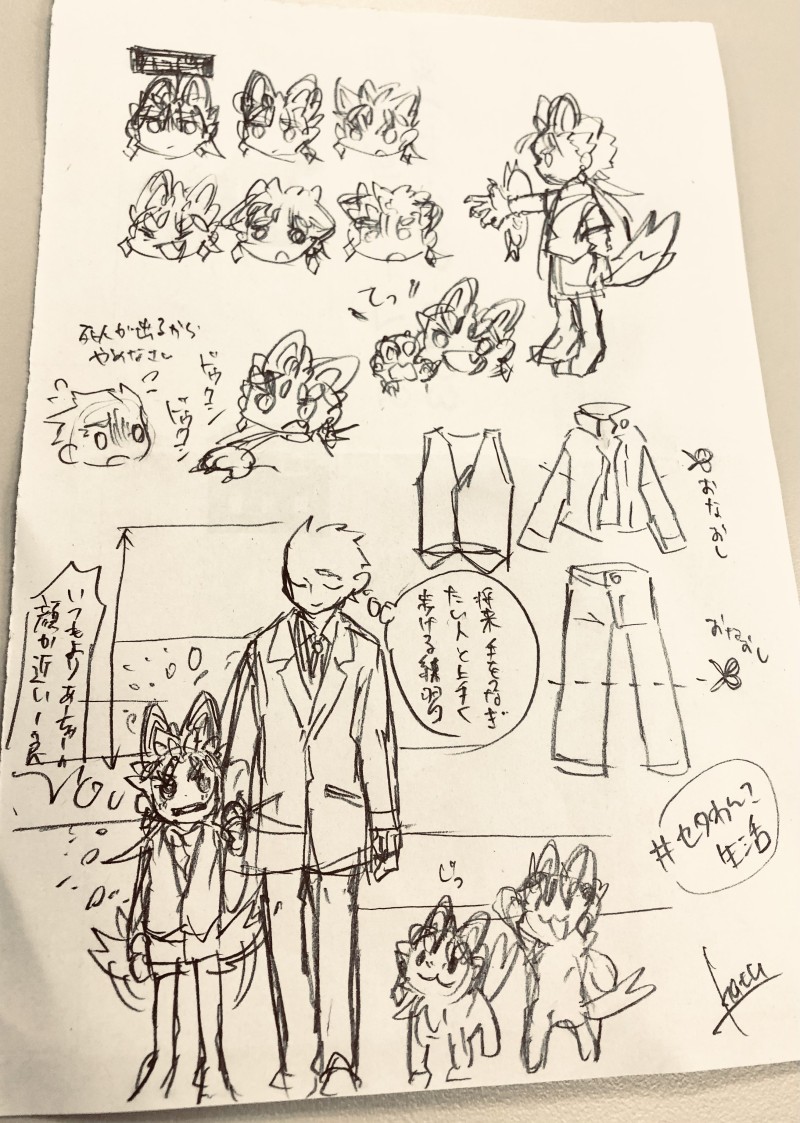 てっ!!
死人が出るから
やめなさい
ドゥクン
ドゥクン
おなおし
将来 手をつなぎ
たい人と上手く
歩ける練習
おなおし
いつもより
顔が近い！
#セタわんこ
生活
じっ